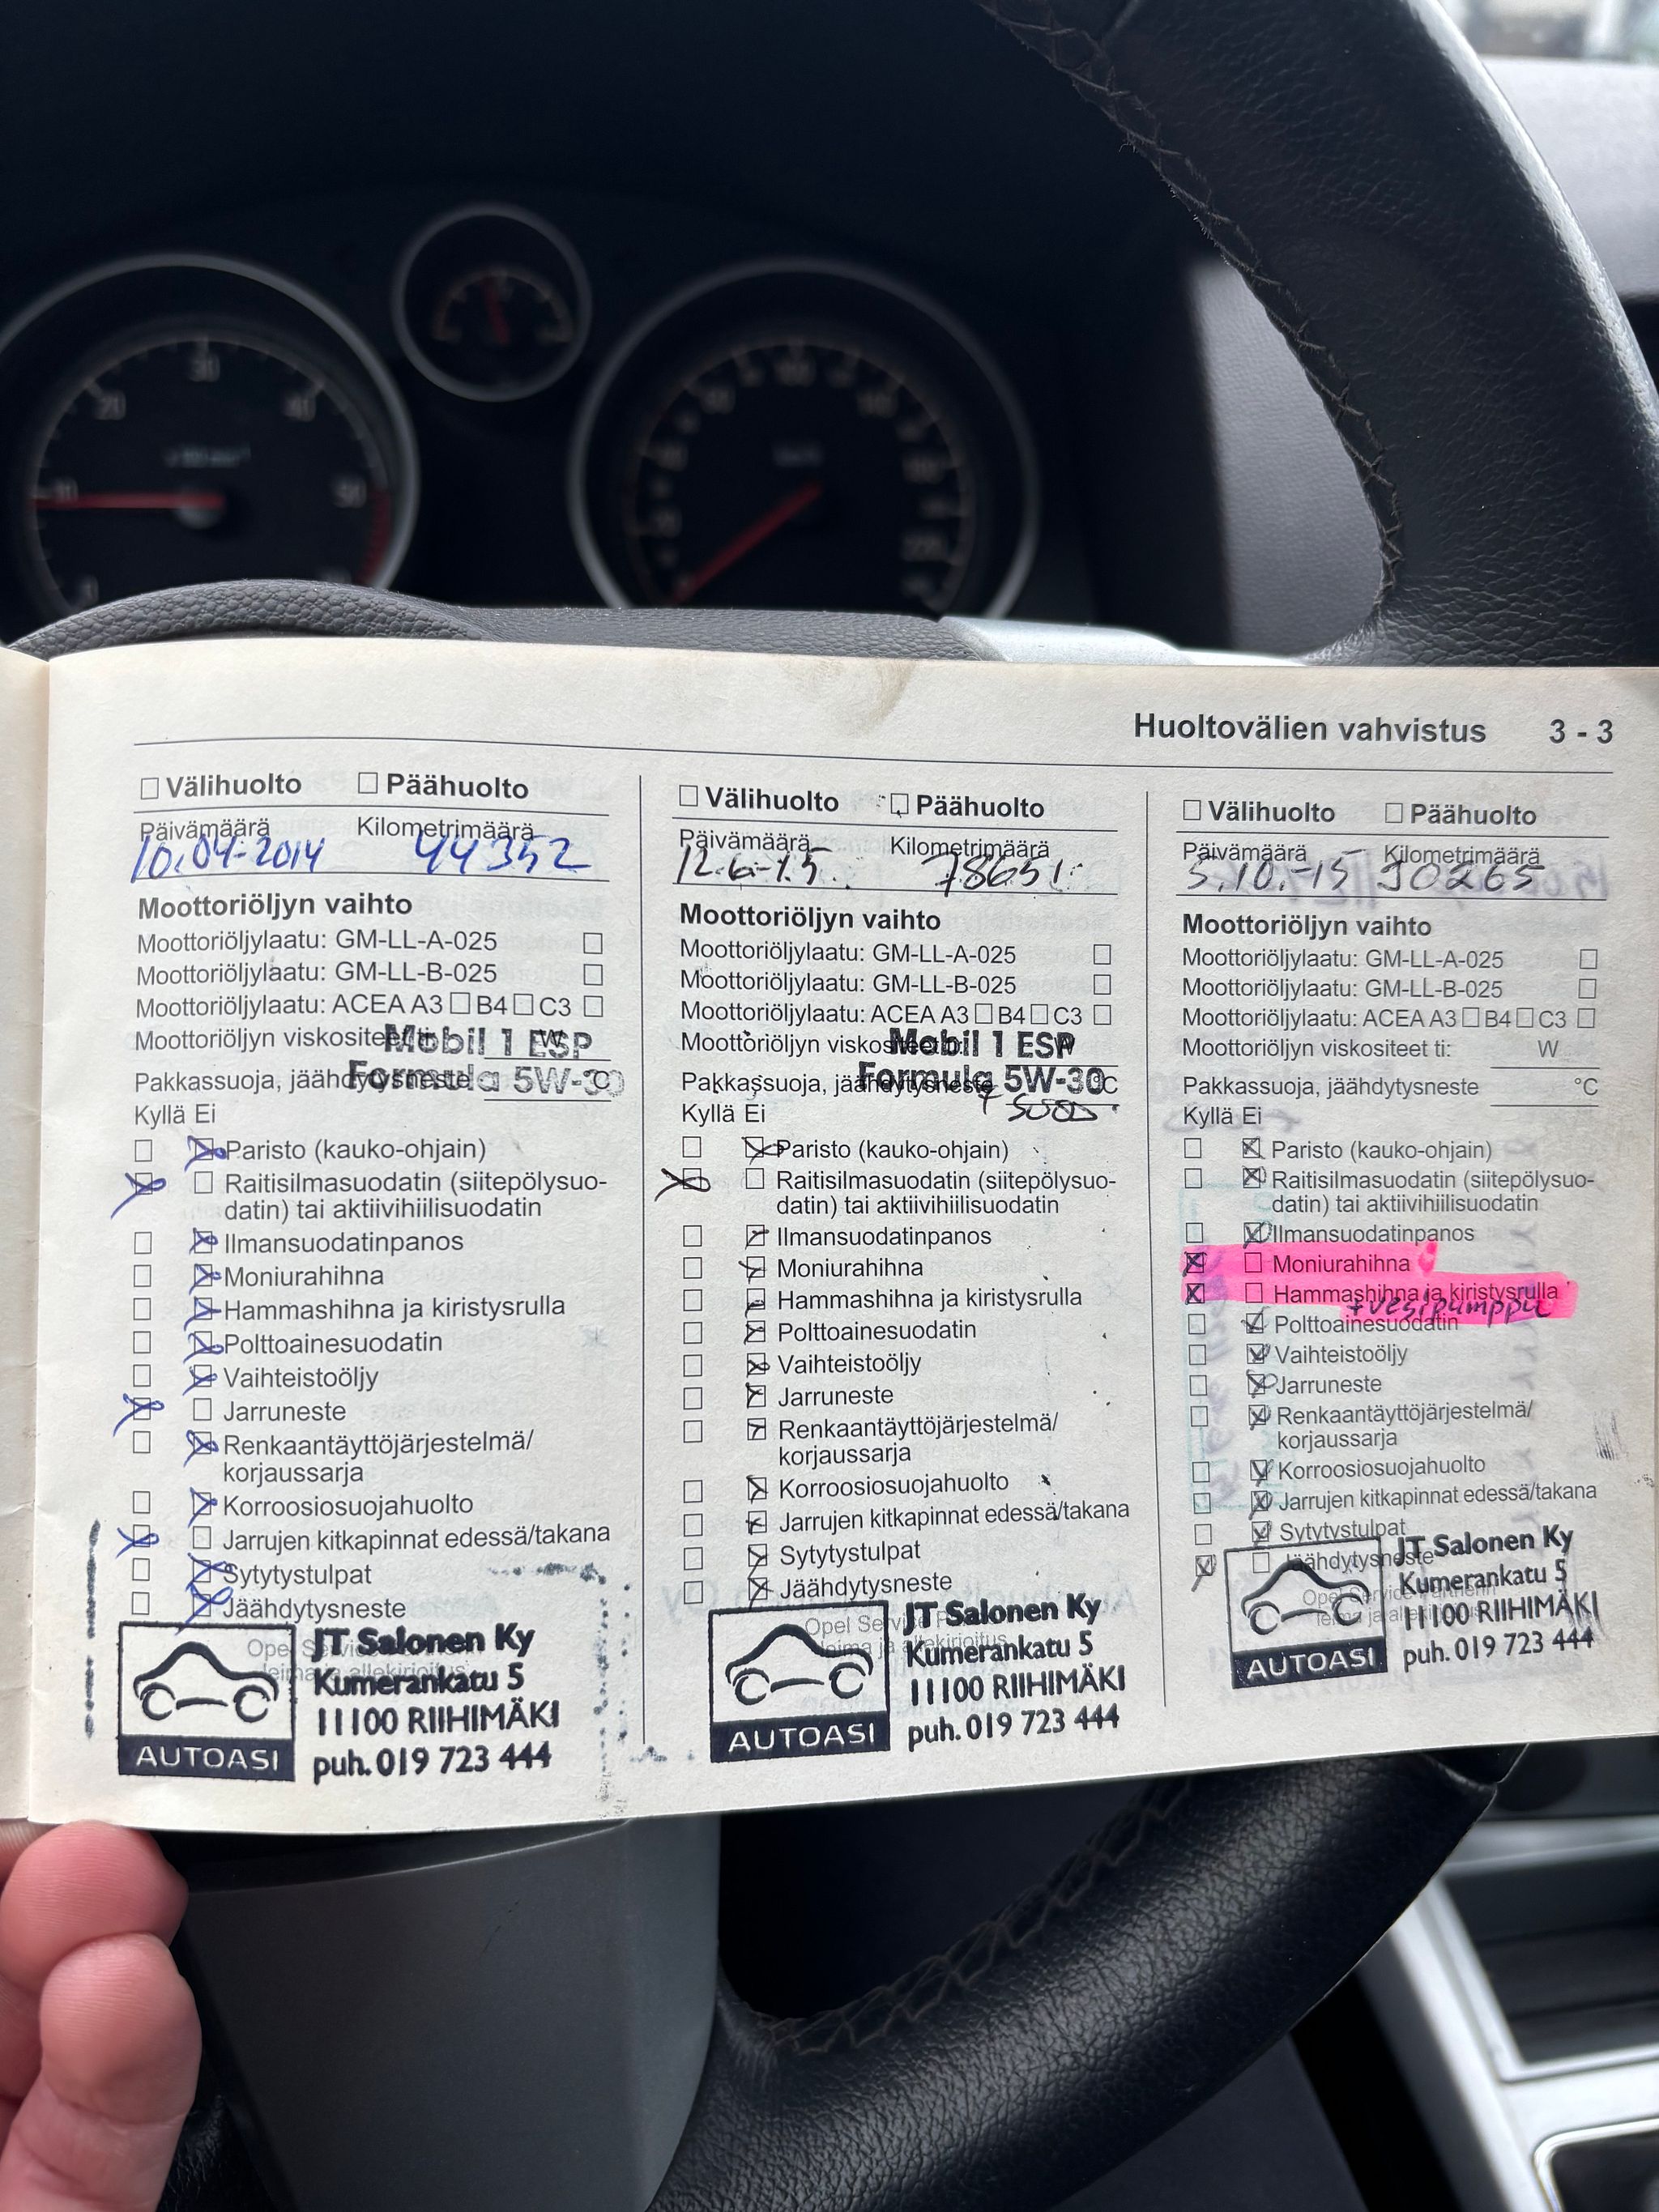 20
30
40
10
50
100
km/h
220
Huoltovälien vahvistus 3 - 3
☐ Välihuolto ☐ Päähuolto
Päivämäärä Kilometrimäärä
10.04-2014 44352
Moottoriöljyn vaihto
Moottoriöljylaatu: GM-LL-A-025 ☐
Moottoriöljylaatu: GM-LL-B-025 ☐
Moottoriöljylaatu: ACEA A3 ☐ B4 ☐ C3 ☐
Moottoriöljyn viskositeet ti: W
Mobil 1 ESP
Pakkassuoja, jäähdytysneste °C
Formula 5W-30
Kyllä Ei
Paristo (kauko-ohjain)
Raitisilmasuodatin (siitepölysuo-
datin) tai aktiivihiilisuodatin
Ilmansuodatinpanos
Moniurahihna
Hammashihna ja kiristysrulla
Polttoainesuodatin
Vaihteistoöljy
Jarruneste
Renkaantäyttöjärjestelmä/
korjaussarja
Korroosiosuojahuolto
Jarrujen kitkapinnat edessä/takana
Sytytystulpat
Jäähdytysneste
Opel Service Partnerin
leima ja allekirjoitus
AUTOASI
JT Salonen Ky
Kumerankatu 5
11100 RIIHIMÄKI
puh. 019 723 444
☐ Välihuolto ☐ Päähuolto
Päivämäärä Kilometrimäärä
12.6-15. 78651
Moottoriöljyn vaihto
Moottoriöljylaatu: GM-LL-A-025 ☐
Moottoriöljylaatu: GM-LL-B-025 ☐
Moottoriöljylaatu: ACEA A3 ☐ B4 ☐ C3 ☐
Moottoriöljyn viskositeet ti: W
Mobil 1 ESP
Pakkassuoja, jäähdytysneste °C
Formula 5W-30
Kyllä Ei
Paristo (kauko-ohjain)
Raitisilmasuodatin (siitepölysuo-
datin) tai aktiivihiilisuodatin
Ilmansuodatinpanos
Moniurahihna
Hammashihna ja kiristysrulla
Polttoainesuodatin
Vaihteistoöljy
Jarruneste
Renkaantäyttöjärjestelmä/
korjaussarja
Korroosiosuojahuolto
Jarrujen kitkapinnat edessä/takana
Sytytystulpat
Jäähdytysneste
Opel Service Partnerin
leima ja allekirjoitus
AUTOASI
JT Salonen Ky
Kumerankatu 5
11100 RIIHIMÄKI
puh. 019 723 444
☐ Välihuolto ☐ Päähuolto
Päivämäärä Kilometrimäärä
5.10.-15 90265
Moottoriöljyn vaihto
Moottoriöljylaatu: GM-LL-A-025 ☐
Moottoriöljylaatu: GM-LL-B-025 ☐
Moottoriöljylaatu: ACEA A3 ☐ B4 ☐ C3 ☐
Moottoriöljyn viskositeet ti: W
Pakkassuoja, jäähdytysneste °C
Kyllä Ei
Paristo (kauko-ohjain)
Raitisilmasuodatin (siitepölysuo-
datin) tai aktiivihiilisuodatin
Ilmansuodatinpanos
Moniurahihna
Hammashihna ja kiristysrulla
+vesipumppu
Polttoainesuodatin
Vaihteistoöljy
Jarruneste
Renkaantäyttöjärjestelmä/
korjaussarja
Korroosiosuojahuolto
Jarrujen kitkapinnat edessä/takana
Sytytystulpat
Jäähdytysneste
Opel Service Partnerin
leima ja allekirjoitus
AUTOASI
JT Salonen Ky
Kumerankatu 5
11100 RIIHIMÄKI
puh. 019 723 444